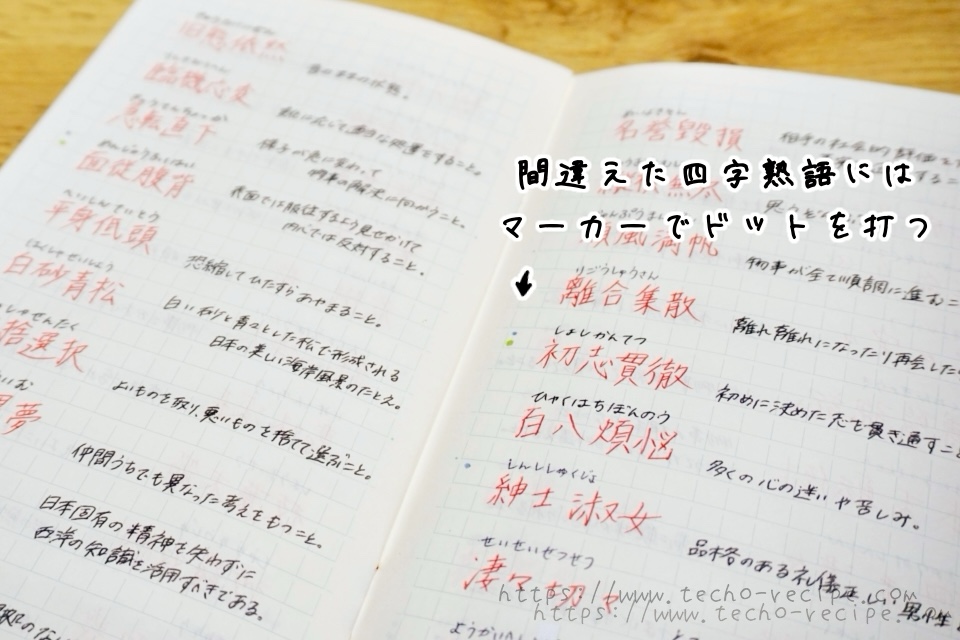 臨機応変
急転直下
様子が急に変わって
面従腹背
表面では服従するように見せかけて
内心では反対すること。
へいしんていとう
平身低頭
恐縮してひたすらあやまること。
はくしゃせいしょう
白砂青松
白い砂と青々とした松で形成される
日本の美しい海岸風景のたとえ。
捨選択
よいものを取り、悪いものを捨てて選ぶこと。
夢
仲間うちでも異なった考えをもつこと。
日本固有の精神を失わずに
西洋の知識を活用すべきである。
名誉毀損
間違えた四字熟語には
マーカーでドットを打つ
順風満帆
物事が全て順調に進むこ
りごうしゅうさん
離合集散
離れ離れになったり再会した
しょしかんてつ
初志貫徹
初めに決めた志を貫き通すこ
ひゃくはちぼんのう
百八煩悩
多くの心の迷いや苦しみ。
しんししゅくじょ
紳士淑女
品格のある礼儀正しい男性
せいせいせつせつ
凄々切々
https://www.techo-recipe.com
https://www.techo-recipe.